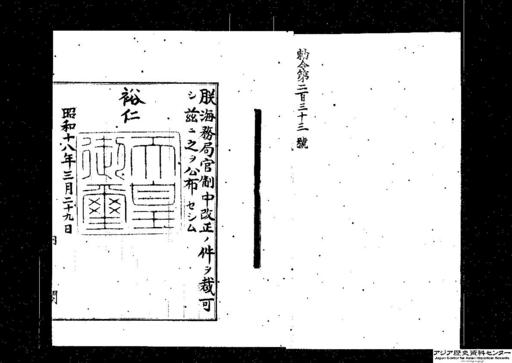 勅令第二百三十三號
朕海務局官制中改正ノ件ヲ裁可
シ茲ニ之ヲ公布セシム
裕仁
天皇
御璽
昭和十八年三月二十九日
アジア歴史資料センター
Japan Center for Asian Historical Records